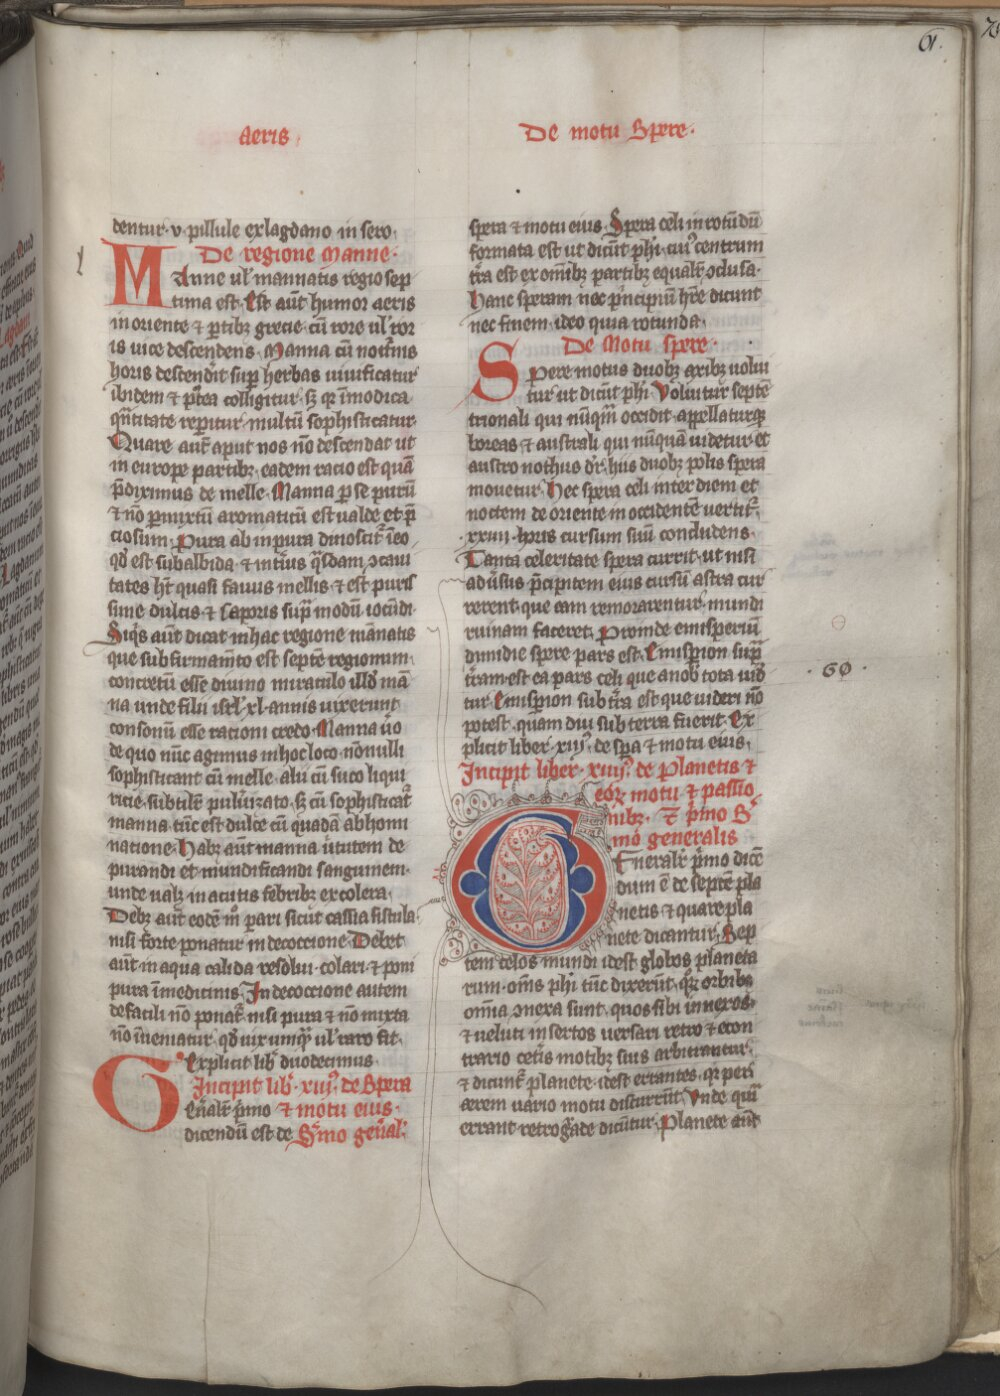 61.
Aeris.
De motu Spere.
dentur .v. pillule ex lagdano in sero.
De regione Manne.
Manne ul' mannatis regio sep
tima est. Est aūt humor aeris
in oriente ⁊ ꝑtibꝫ grecie. cū rore ul' ror
is uice descendens. Manna cū noct̄nis
horis descendit suꝑ herbas uiuificatur
ibidem ⁊ ꝑtea colligitur. sꝫ qꝛ īmodica
qn̄titate reꝑitur. multū sophisticatur.
Quare aut̄ aput nos nō descendat ut
in europe partibꝫ. eadem racio est quā
p̄diximus de melle. Manna ꝑ se purū
⁊ nō ꝑmixtū aromaticū est ualde et p̄
ciosum. Pura ab inpura dinoscit᷑ īeo
qd̓ est subalbida. ⁊ int̄ius q̄sdam ꝯcaui
tates hꝫ quasi fauus mellis. ⁊ est puris
sime dulcis ⁊ saporis suꝑ modū iocūdi
Siq̓s aūt dicat in hac regione mānatis
que sub firmam̄to est septē regionum.
concretū esse diuino miraculo illd̓ mā
na unde filii isrl' .xl. annis uixerunt
consonū esse racioni credo. Manna ūo
de quo nūc agimus in hoc loco. nōnulli
sophisticant cū melle. alii cū suco liqui
ricie. subtilit̄ pulūizato. sꝫ cū sophisticat᷑
manna. tūc est dulce cū quadā abhomi
natione. Habꝫ aūt manna ūtutem de
purandi et mundificandi sanguinem.
unde ualꝫ in acutis febribꝫ ex colera.
Debꝫ aūt eodē m̊ pari sicut cassia fistula
nisi forte ponatur in decoccione. Debet
aūt in aqua calida resolui. colari. ⁊ poni
pura ī medicinis. In decoccione autem
de facili nō ponat᷑. nisi pura ⁊ nō mixta
nō īueniatur. qd̓ uix umqꝫ ul' raro fit.
Explicit lib̓ duodecimus.
Incipit lib̓ .xiij⁹. de Spera
⁊ motu eius.
Gen̄alit̄ p̓mo
dicendū est de
S̄mo gen̄al'.
spera ⁊ motu eius. Spera celi in rotūdū
formata est ut dicūt ph̓i. cui⁹ centrum
t̄ra est ex om̄ibꝫ partibꝫ equalit̄ ꝯclusa.
Hanc speram nec p̓ncipiū hr̄e dicunt
nec finem. ideo quia rotunda.
De Motu spere.
Spere motus duobꝫ axibꝫ uolui
tur ut dicūt ph̓i. Voluitur septē
trionali qui nūqm̄ occidit. appellaturqꝫ
boreas. ⁊ australi qui nūquā uidetur. et
austro nothus dr̄. hiis duobꝫ polis spera
mouetur. Hec spera celi inter diem et
noctem de oriente in occidentē uertit᷑.
.xxiiij. horis cursum suū concludens.
Tanta celeritate spera currit. ut nisi
aduʼsus p̄cipitem eius cursū astra cur
rerent. que eam remorarentur. mundi
ruinam faceret. Proinde emisperiū
dimidie spere pars est. Emisperion supra
t̄ram est ea pars celi que a nob̓ tota uid̓
tur. Emisperion sub t̄ra est que uideri nō
potest. quam diu sub terra fuerit. Ex
plicit liber .xiij⁹. de sꝑa ⁊ motu eius.
Incipit liber .xiiij⁹. de Planetis ⁊
eoꝝ motu ⁊ passio
nibꝫ. Et p̓mo S̄
mo generalis
Generalit̄ p̓mo dicē
dum ē de septē pla
netis ⁊ quare pla
nete dicantur. Sep
tem celos mundi idest globos planeta
rum. om̄s ph̓i tūc dixerūt. quoꝝ orbibꝫ
om̄ia ꝯnexa sunt. quos sibi innexos.
⁊ ueluti insertos versari retro ⁊ econ
trario cet̄is motibꝫ suis arbitrantur.
⁊ dicunt᷑ planete. idest errantes. qꝛ per
aerem uario motu discurrūt. Vnde quia
errant retrograde dicūtur. Planete aūt
. 60 .